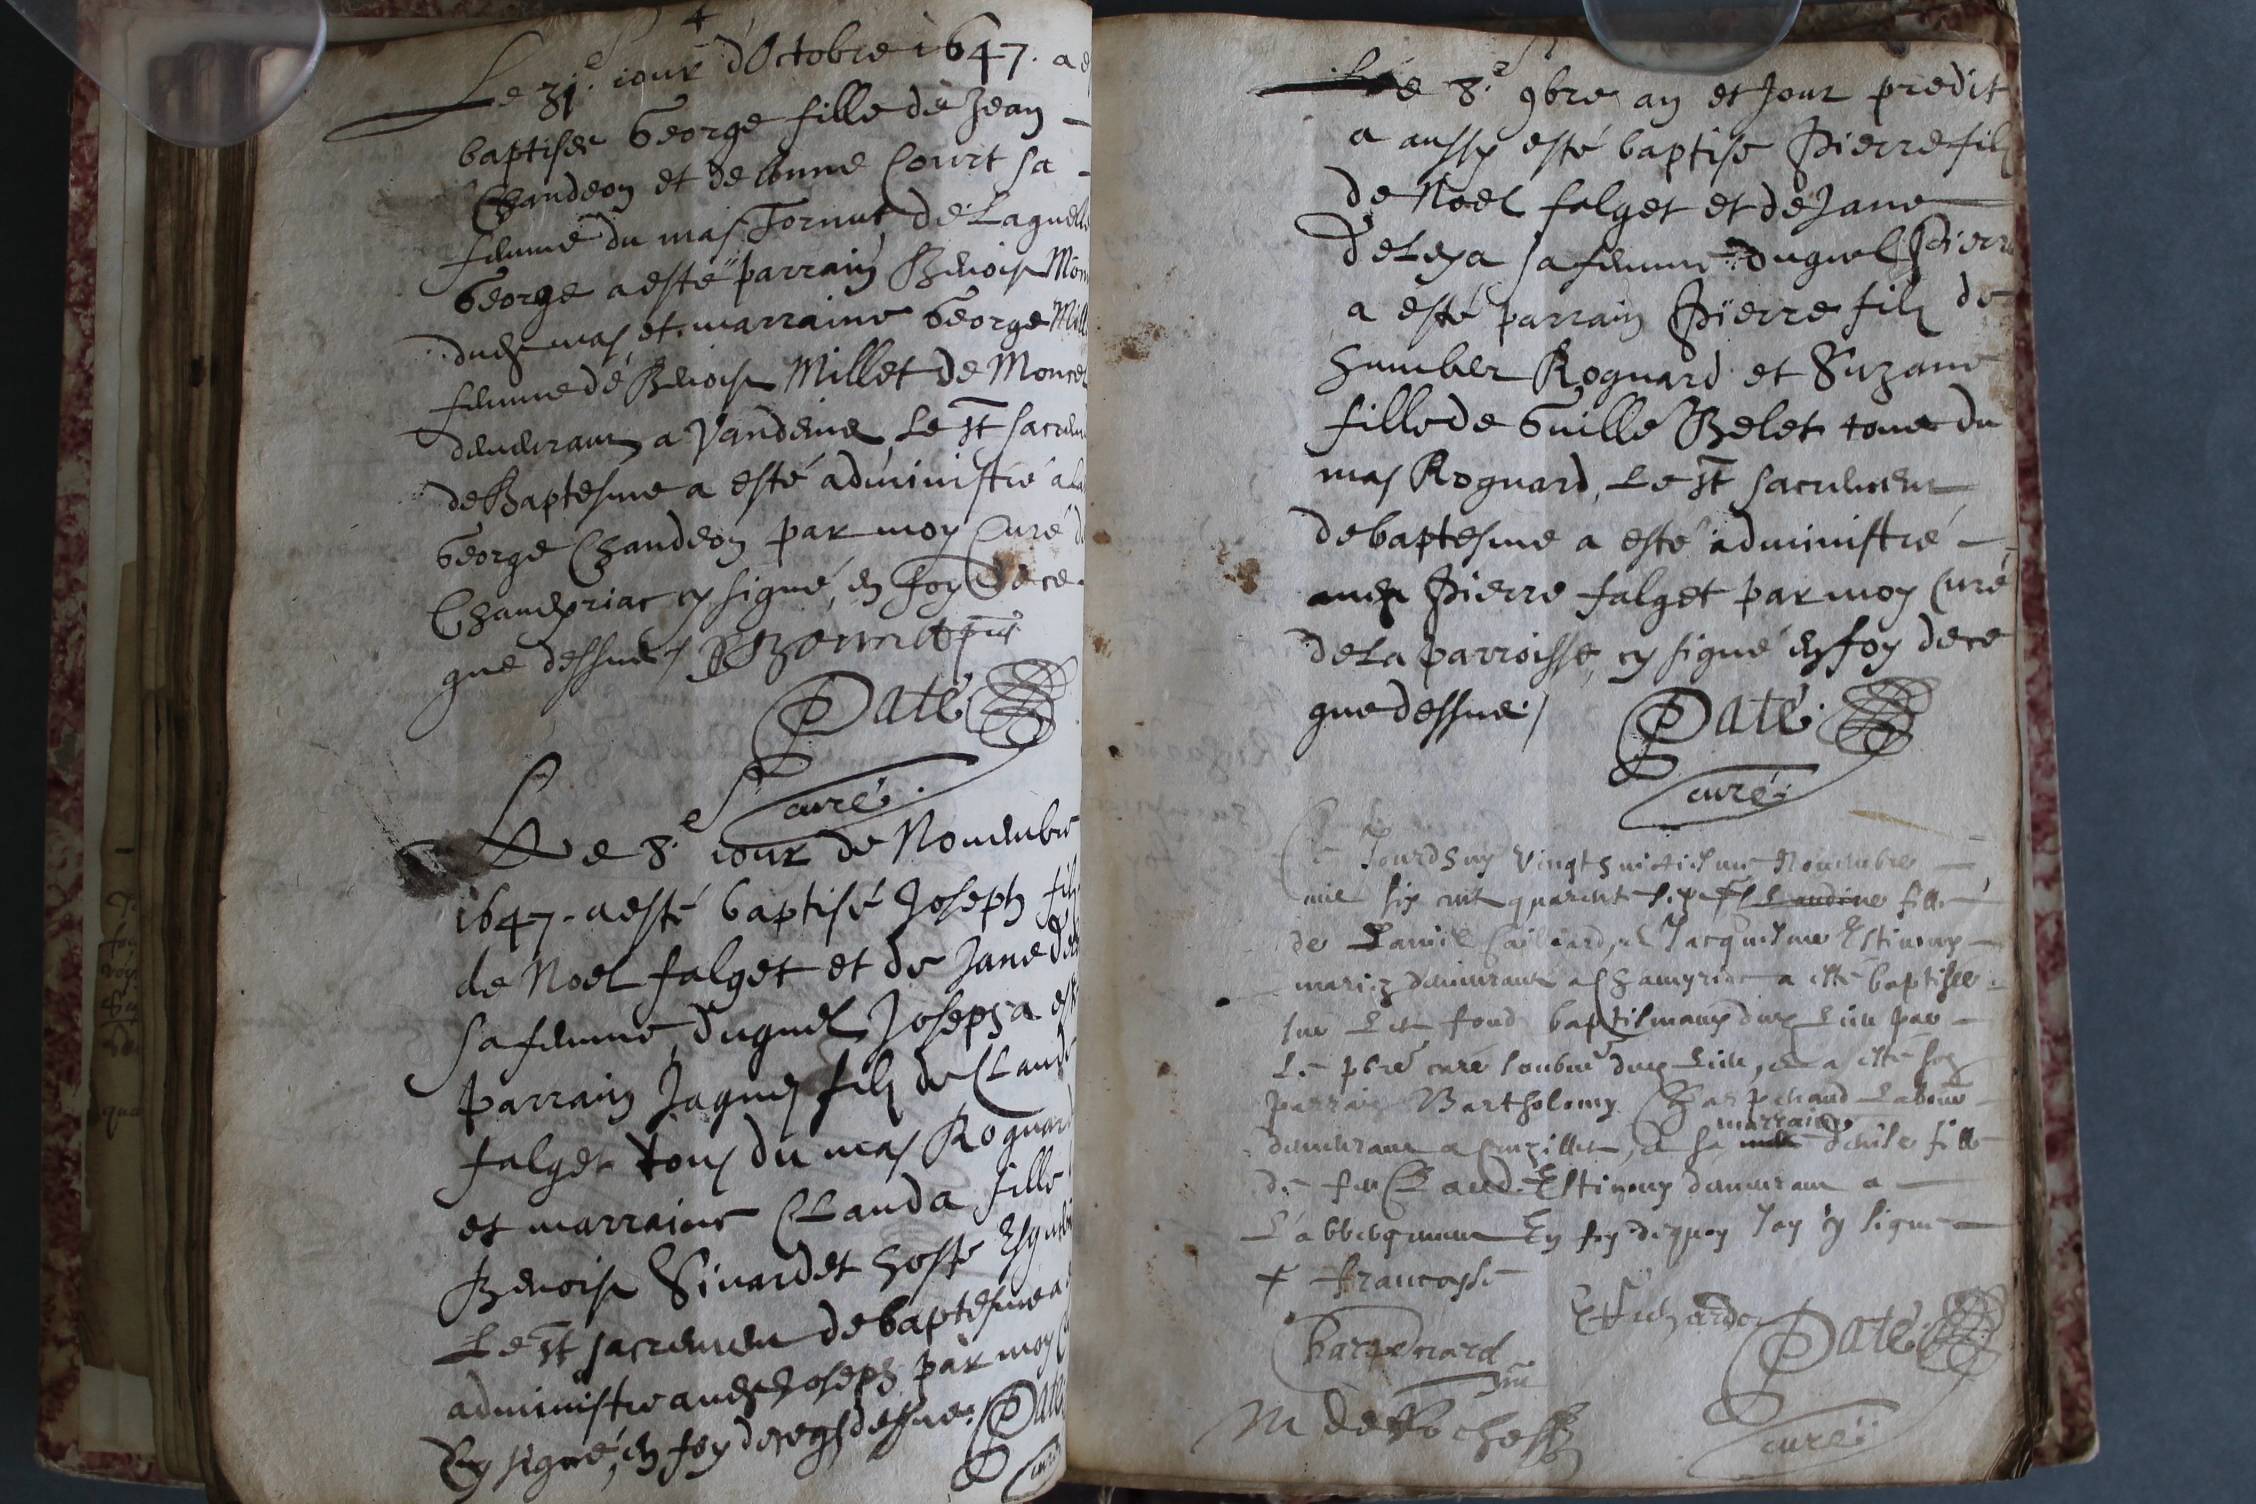 Le 31.e iour d'Octobre 1647. a e
baptisée George fille de Jean
Chandeon et de bonne Court sa
femme du mas Tornut, de Laquelle
George a esté parrain Benoist
dudt mas, et marraine George
femme de Benoist Millet de
demeurant a Vandeine Le st
de Baptesme a esté administré a La
George Chandeon par moy Curé
Champriac cy signé, en foy de ce
que dessus /
Paté
curé.
Le 8.e iour de Nouembre
1647. a esté baptisé Joseph
de Noel falget et de Jane
sa femme, duquel Joseph a
parrain Jaques fils de Claude
falget tous du mas Roguard
et marraine Clauda fille
Benoist Siuardet hoste
Le st sacrement de baptesme a
administré audt Joseph par moy
Cy signé, en foy de ce q dessus. Paté
curé
Le 8.e 9bre an et Jour predit
a aussy esté baptisé Pierre fils
de Noel falget et de Jane
Deleya sa femme duquel Pierre
a esté parrain Pierre fils de
humber Roguard et Suzane
fille de Guille Belet tous du
mas Roguard, Le st sacrement
de baptesme a esté administré
audt Pierre falget par moy Curé
de La parroisse, cy signé en foy de ce
que dessus. / Paté.
curé.
Ce Jourdhuy vingt huictiesme Nouembre
mil six cent quarente sept fille
de Jacquesme Estieuny
mariez demeurant a Champriac a esté baptisée
sur Les fonds baptismaux dudt Lieu par
Le pbre curé soubné dudt Lieu, et a esté son
parrain Bartholomy Charpenard
demeurant a Cruzilles, et sa marraine denise fille
de feu Claude Estieuny demeurant a
L'abbergement En foy dequoy Jay cy signe
+ francoyse
Charpenard
Paté
M de
curé